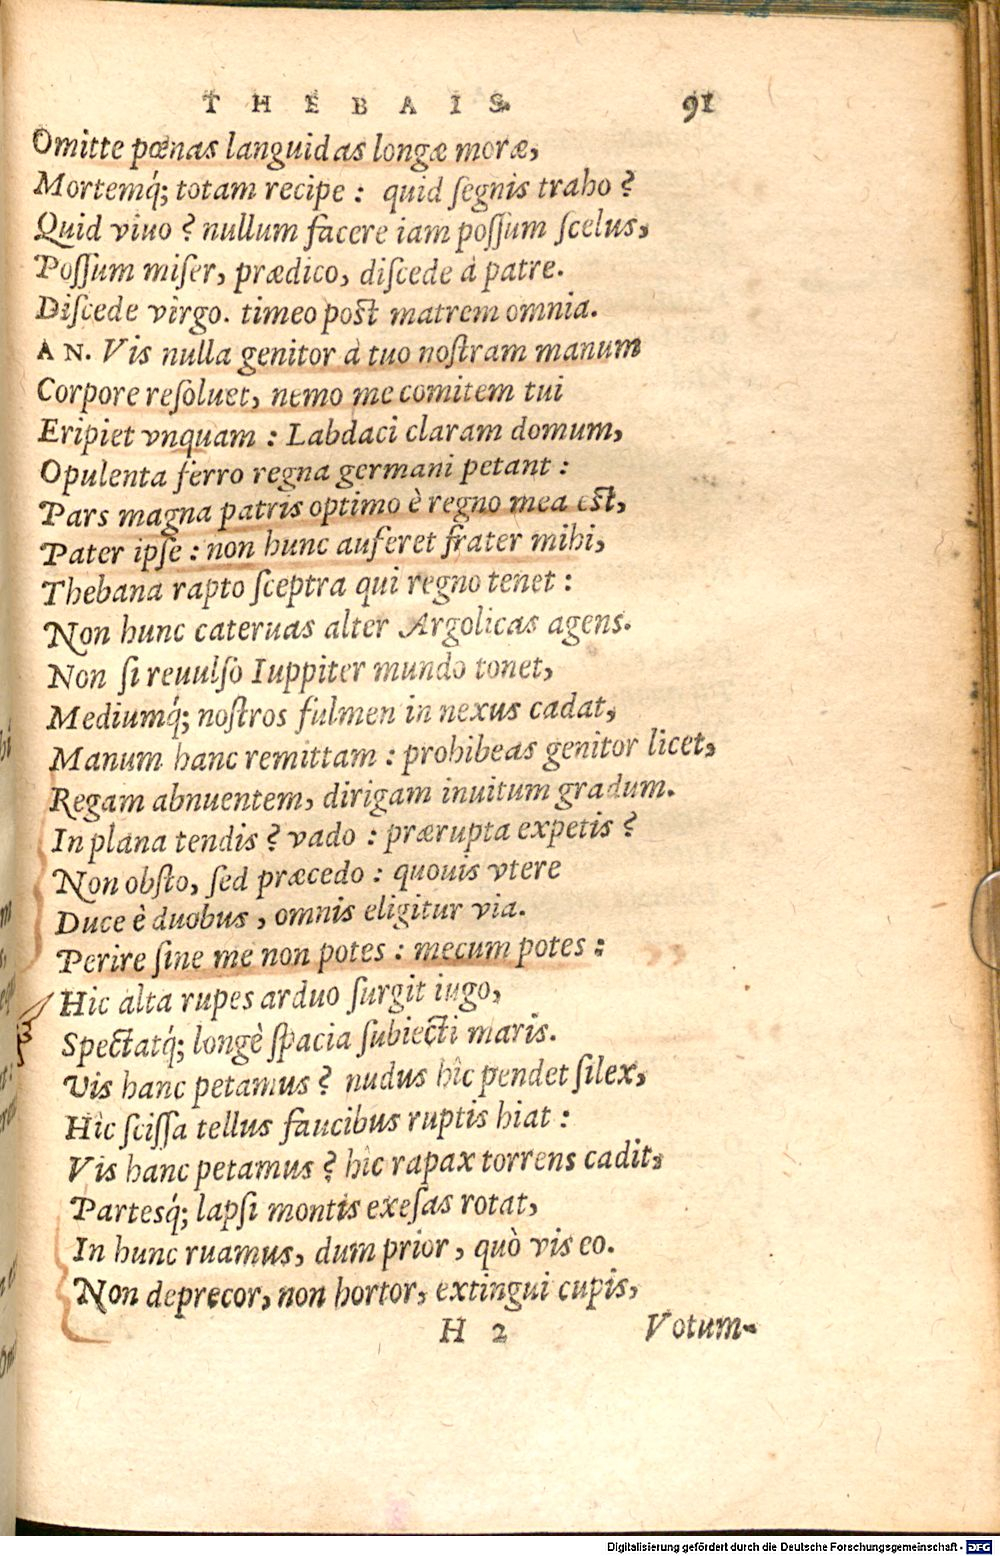 THEBAIS. 91
Omitte pœnas languidas longæ moræ,
Mortemq́; totam recipe: quid ſegnis traho?
Quid viuo? nullum facere iam poſſum ſcelus,
Poſſum miſer, prædico, diſcede à patre.
Diſcede virgo. timeo poſt matrem omnia.
AN. Vis nulla genitor à tuo noſtram manum
Corpore reſoluet, nemo me comitem tui
Eripiet vnquam: Labdaci claram domum,
Opulenta ferro regna germani petant:
Pars magna patris optimo è regno mea eſt,
Pater ipſe: non hunc auferet frater mihi,
Thebana rapto ſceptra qui regno tenet:
Non hunc cateruas alter Argolicas agens.
Non ſi reuulſo Iuppiter mundo tonet,
Mediumq́; noſtros fulmen in nexus cadat,
Manum hanc remittam: prohibeas genitor licet,
Regam abnuentem, dirigam inuitum gradum.
In plana tendis? vado: prærupta expetis?
Non obſto, ſed præcedo: quouis vtere
Duce è duobus, omnis eligitur via.
Perire ſine me non potes: mecum potes:
Hic alta rupes arduo ſurgit iugo,
Spectatq́; longè ſpacia ſubiecti maris.
Vis hanc petamus? nudus hîc pendet ſilex,
Hîc ſciſſa tellus faucibus ruptis hiat:
Vis hanc petamus? hîc rapax torrens cadit,
Partesq́; lapſi montis exeſas rotat,
In hunc ruamus, dum prior, quò vis eo.
Non deprecor, non hortor, extingui cupis,
H 2 Votum-
Digitalisierung gefördert durch die Deutsche Forschungsgemeinschaft - DFG